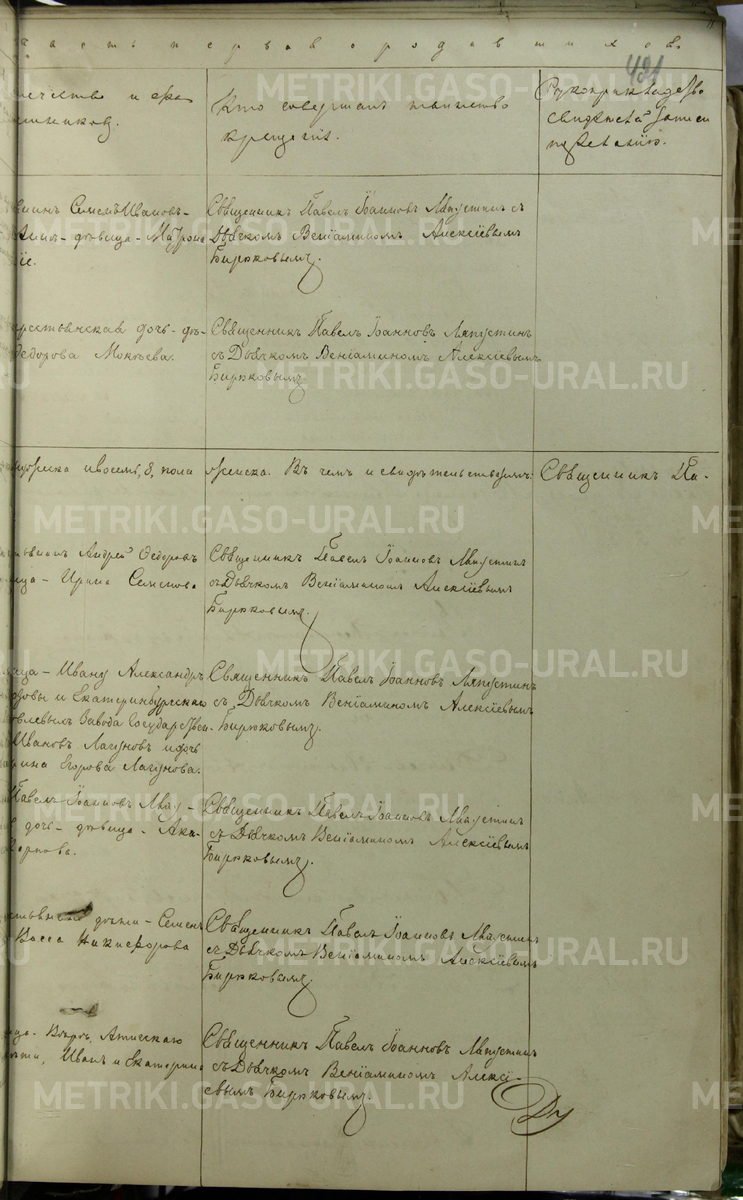 Часть первая о родившихся.
481
Кто совершалъ таинство
крещенія.
Рукоприкладство
свидѣтелей записи
по желанію.
METRIKI.GASO-URAL.RU
Семенъ Ивановъ
дѣвица
Священникъ Павелъ Іоанновъ Ляпустинъ с
Дьячкомъ Веніаминомъ Алексіевымъ
Бирюковымъ.
крестьянская дочь дѣ-
Ѳедорова Мокѣева.
Священникъ Павелъ Іоанновъ Ляпустинъ
съ Дьячкомъ Веніаминомъ Алексіевымъ
Бирюковымъ
METRIKI.GASO-URAL.RU
и восемь, 8, пола
женска. Въ чемъ и свидѣтельствуемъ:
Священникъ Па-
METRIKI.GASO-URAL.RU
Андрей Ѳедоровъ
Ирина Семенова
Священникъ Павелъ Іоанновъ Ляпустинъ
съ Дьячкомъ Веніаминомъ Алексіевымъ
Бирюковымъ.
METRIKI.GASO-URAL.RU
Иванъ Александр
и Екатеринбургско
Завода Государствен
Ивановъ Лагуновъ
Егорова Лагунова.
Священникъ Павелъ Іоанновъ Ляпустинъ
съ Дьячкомъ Веніаминомъ Алексіевымъ
Бирюковымъ.
METRIKI.GASO-URAL.RU
Павелъ Іоанновъ Ляпу-
дочь дѣвица
Священникъ Павелъ Іоанновъ Ляпустинъ
съ Дьячкомъ Веніаминомъ Алексіевымъ
Бирюковымъ.
дѣти Семенъ
Васса Никифорова
Священникъ Павелъ Іоанновъ Ляпустинъ
съ Дьячкомъ Веніаминомъ Алексіевымъ
Бирюковымъ.
METRIKI.GASO-URAL.RU
Иванъ и Екатерина
Священникъ Павелъ Іоанновъ Ляпустинъ
съ Дьячкомъ Веніаминомъ Алексі-
евымъ Бирюковымъ.
METRIKI.GASO-URAL.RU